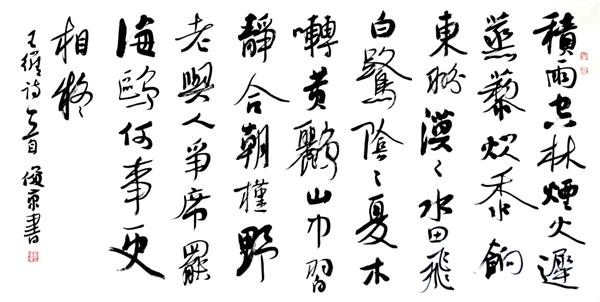 積雨空林煙火遲
蒸藜炊黍餉
東菑漠々水田飛
白鷺陰々夏木
囀黃鸝山中習
靜合朝槿野
老與人爭席罷
海鷗何事更
相疑
王維詩一首 書